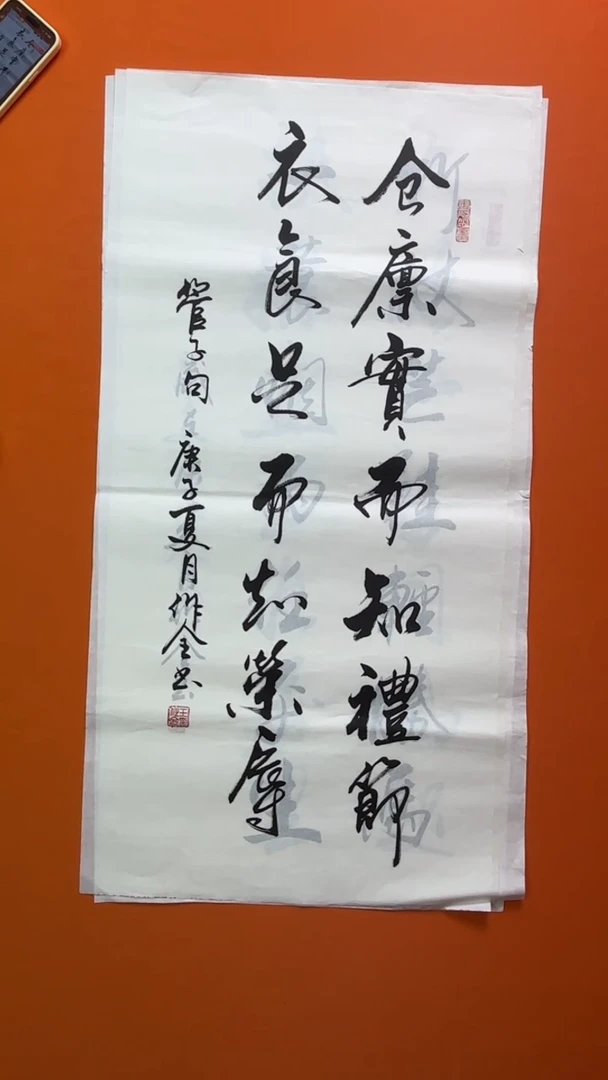 仓廪實而知禮節
衣食足而知榮辱
管子句 庚子夏月作全书